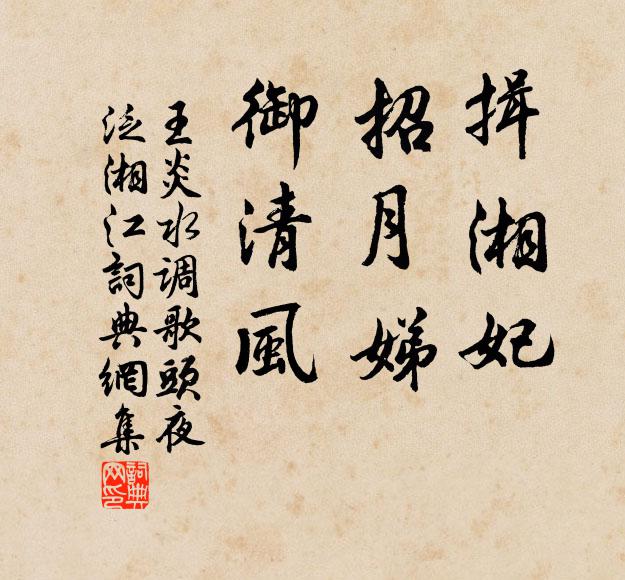 揖湘妃
招月娣
御清風
王炎水调歌頭夜
泛湘江詞典網集
詞典网印